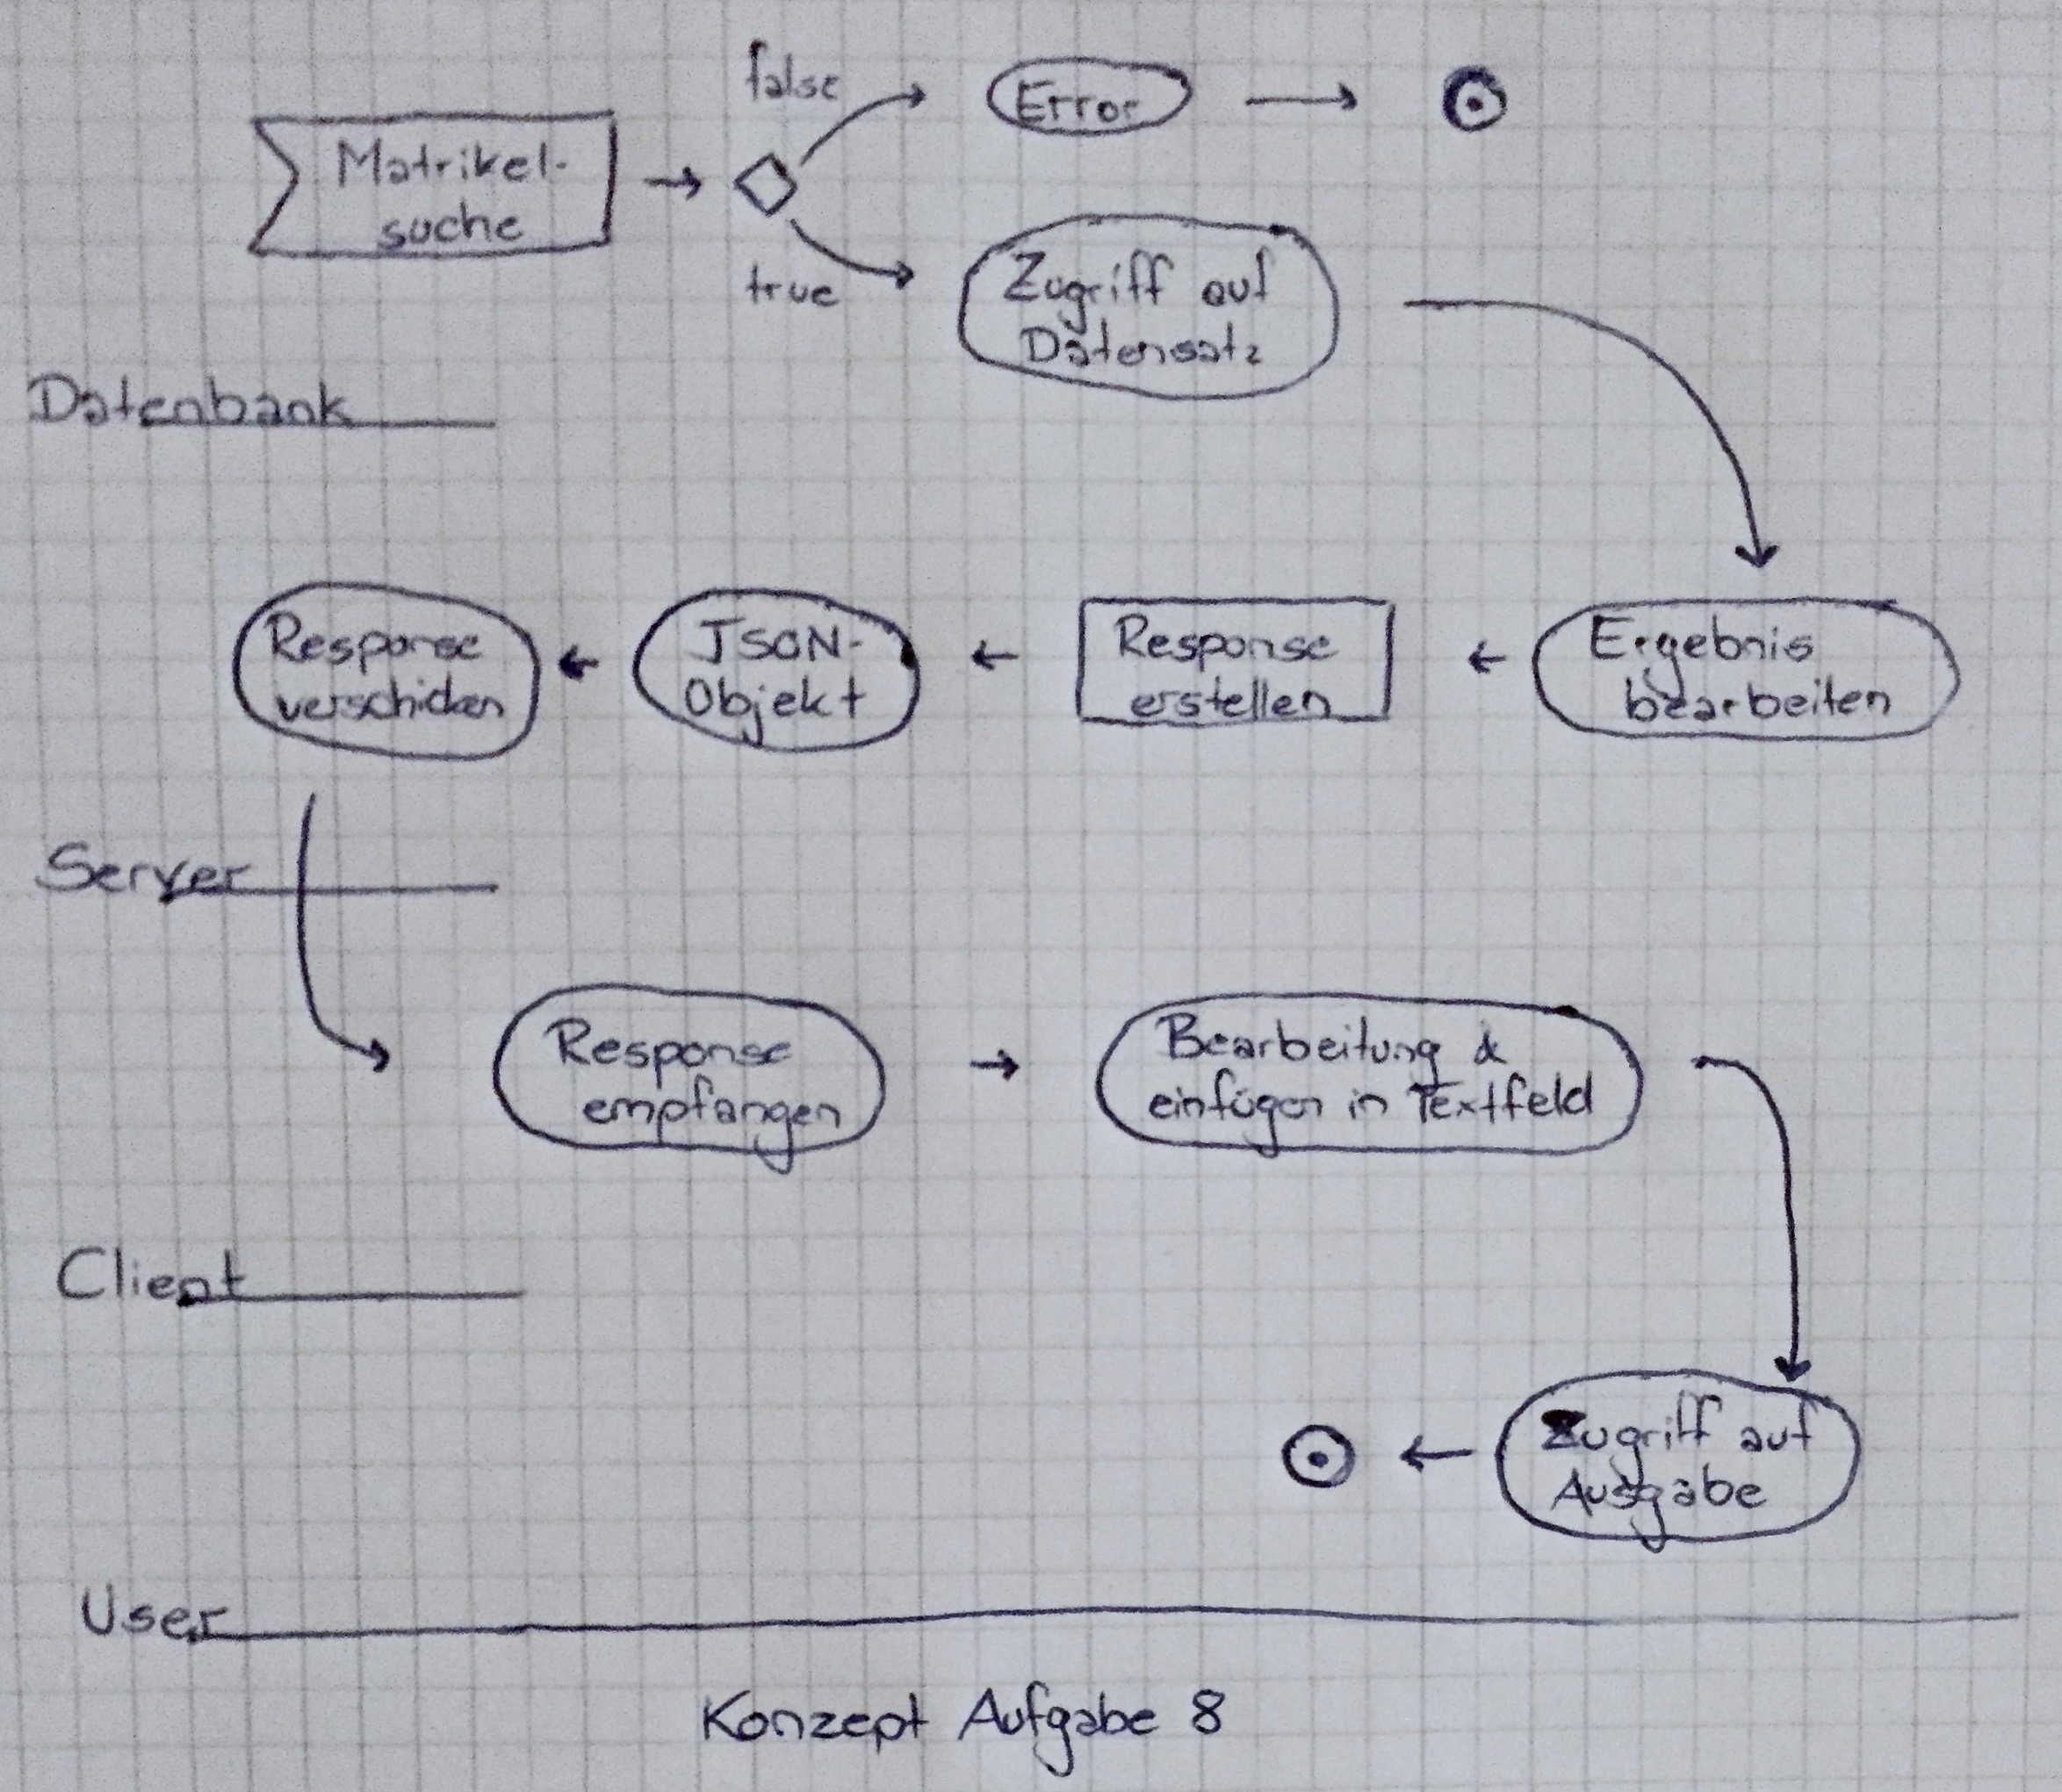 false
Error
Matrikel-
suche
true
Zugriff auf
Datensatz
Datenbank
Response
verschicken
JSON-
Objekt
Response
erstellen
Ergebnis
bearbeiten
Server
Response
empfangen
Bearbeitung &
einfügen in Textfeld
Client
Zugriff auf
Ausgabe
User
Konzept Aufgabe 8